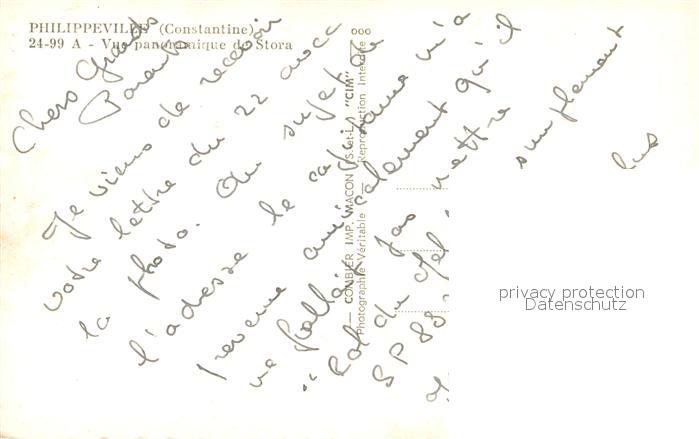 PHILIPPEVILLE (Constantine)
24-99 A - Vue panoramique de Stora
Chers Grands
Parents
Je viens de recevoir
votre lettre du 22 avec
la photo. Au sujet de
l'adresse le capitaine m'a
prevenu amicalement qu'il
ne fallait pas mettre
" du simplement
SP 88
COMBIER IMP. MACON (S.-et-L.) "CIM"
Photographie Véritable - Reproduction Interdite
privacy protection
Datenschutz